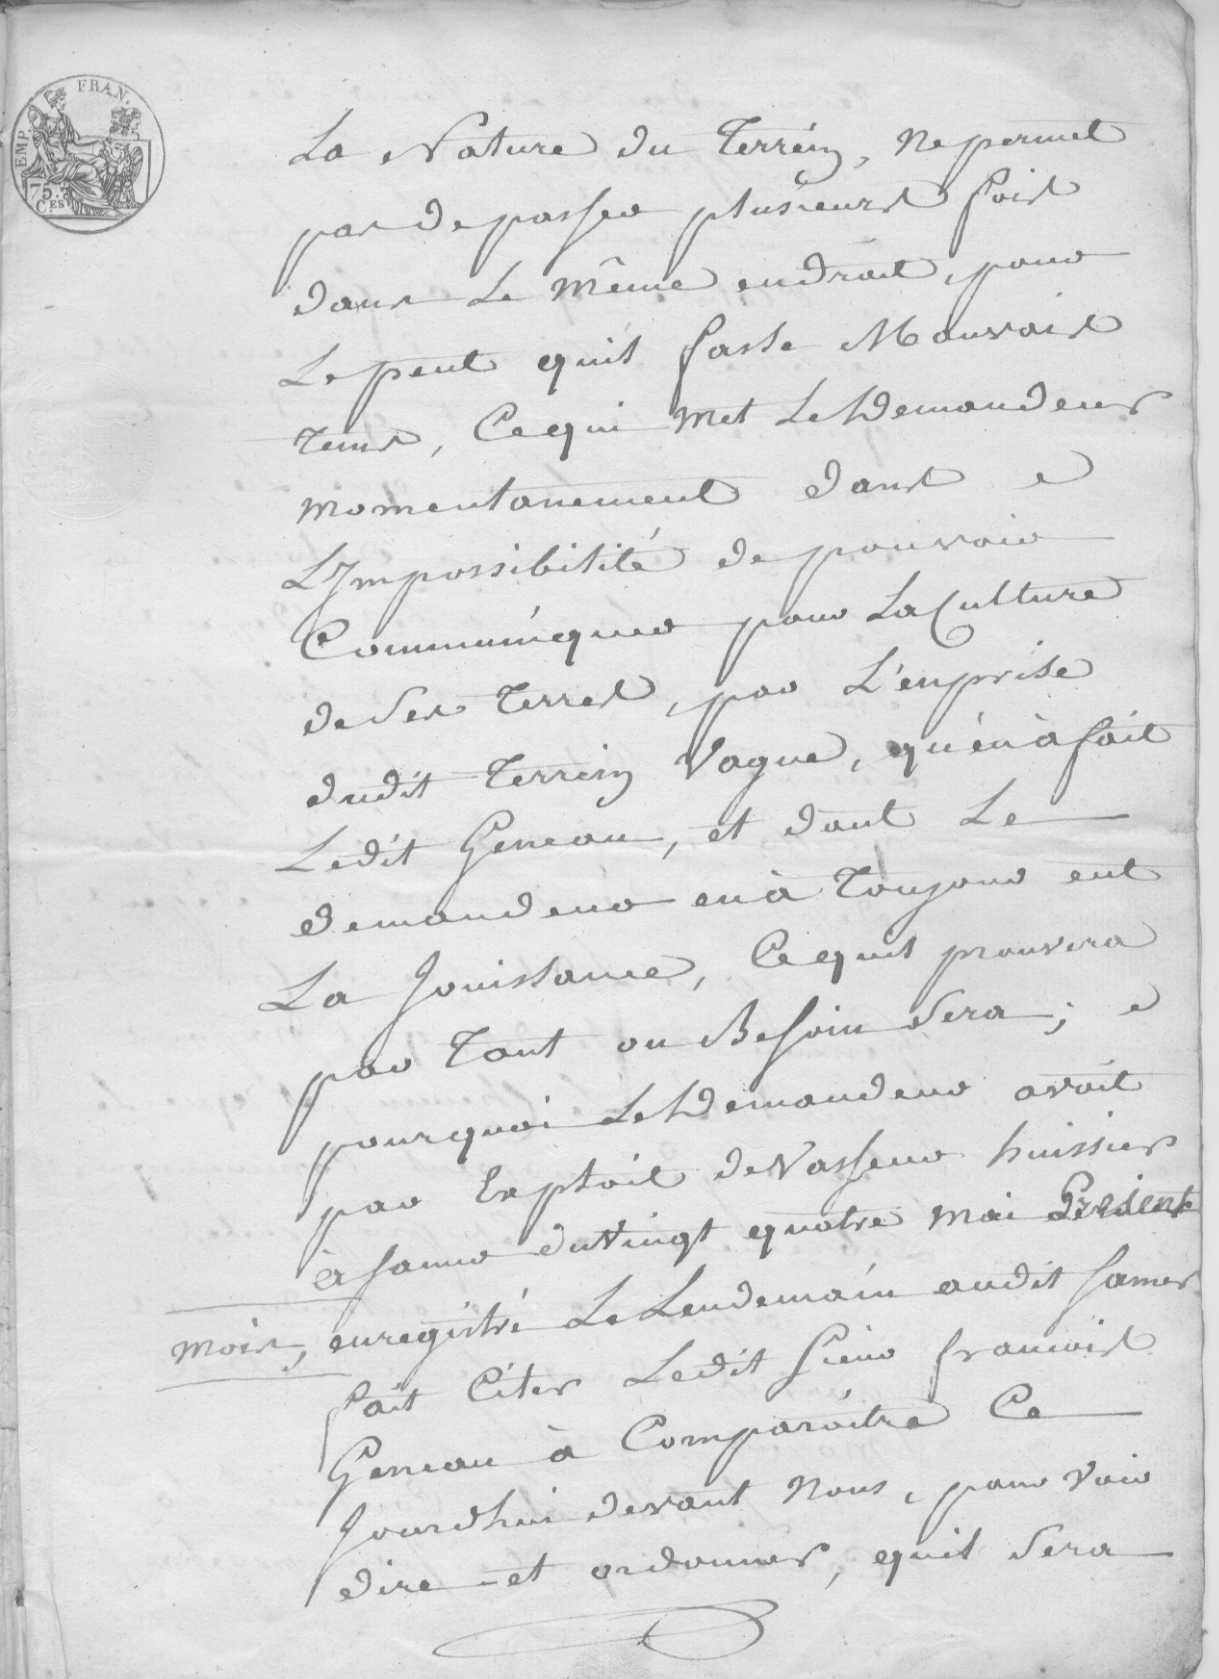 EMP. FRAN.
75.
C.ES
La Nature du Terrein, Ne permet
pas de passer plusieurs fois
dans Le même endroit, pour
Le peut qu'il fasse Mauvais
Tems, Ce qui met Le Demandeur
momentanement dans
L'Impossibilité de pouvoir
Communiquer pour La Culture
de Ses Terres, par L'enprise
dudit Terrein Vague, qu'en à fait
Ledit Geneau, et dont Le
demandeur en à Toujour eut
La Jouissance, Ce quil prouvera
par Tant ou Besoin Sera;
pourquoi Le Demandeur avoit
par Exploit de Vasseur huissier
à Samer du Vingt quatre mai Présent
mois, enregistré Le Lendemain audit Samer
fait Citer Ledit Sieur francois
Geneau à Comparoitre Ce
Jourdhui devant Nous, pour Voir
dire et ordonner, quil Sera